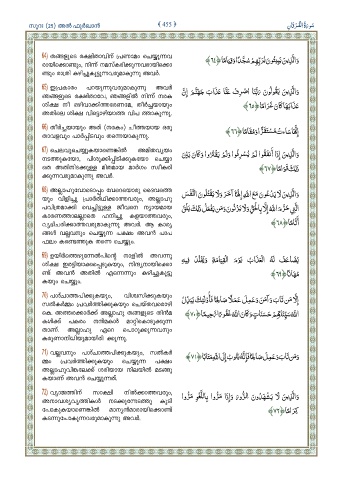 സൂറ (25) അൽ-ഫുർഖാൻ
﴾ 455 ﴿
سورة الفرقان
64) തങ്ങളുടെ രക്ഷിതാവിന് പ്രണാമം ചെയ്യുന്നവ
രായിക്കൊണ്ടും, നിന്ന് നമസ്കരിക്കുന്നവരായിക്കൊ
ണ്ടും രാത്രി കഴിച്ചുകൂട്ടുന്നവരുമാകുന്നു അവർ.
وَالَّذِينَ يَبِيتُونَ لِرَبِّهِمْ سُجَّدًا وَقِيَامًا ﴿٦٤﴾
65) ഇപ്രകാരം പറയുന്നുവരുമാകുന്നു അവർ
ഞങ്ങളുടെ രക്ഷിതാവേ, ഞങ്ങളിൽ നിന്ന് നരക
ശിക്ഷ നീ ഒഴിവാക്കിത്തരേണമേ, തീർച്ചയായും
അതിലെ ശിക്ഷ വിട്ടൊഴിയാത്ത വിപത്താകുന്നു.
وَالَّذِينَ يَقُولُونَ رَبَّنَا اصْرِفْ عَنَّا عَذَابَ جَهَنَّمَ إِنَّ
عَذَابَهَا كَانَ غَرَامًا ﴿٦٥﴾
66) തീർച്ചയായും അത് (നരകം) ചീത്തയായ ഒരു
താവളവും പാർപ്പിടവും തന്നെയാകുന്നു.
إِنَّهَا سَاءَتْ مُسْتَقَرًّا وَمُقَامًا ﴿٦٦﴾
67) ചെലവുചെയ്യുകയാണെങ്കിൽ അമിതവ്യയം
നടത്തുകയോ, പിശുക്കിപ്പിടിക്കുകയോ ചെയ്യാ
തെ അതിനിടക്കുള്ള മിതമായ മാർഗം സ്വീകരി
ക്കുന്നവരുമാകുന്നു അവർ.
وَالَّذِينَ إِذَا أَنْفَقُوا لَمْ يُسْرِفُوا وَلَمْ يَقْتُرُوا وَكَانَ بَيْنَ
ذَلِكَ قَوَامًا ﴿٦٧﴾
68) അല്ലാഹുവോടൊപ്പം വേറെയൊരു ദൈവത്തെ
യും വിളിച്ചു പ്രാർത്ഥിക്കാത്തവരും, അല്ലാഹു
പവിത്രമാക്കി വെച്ചിട്ടുള്ള ജീവനെ ന്യായമായ
കാരണത്താലല്ലാതെ ഹനിച്ചു കളയാത്തവരും,
വ്യഭിചരിക്കാത്തവരുമാകുന്നു അവർ. ആ കാര്യ
ങ്ങൾ വല്ലവനും ചെയ്യുന്ന പക്ഷം അവൻ പാപ
ഫലം കണ്ടെത്തുക തന്നെ ചെയ്യും.
وَالَّذِينَ لَا يَدْعُونَ مَعَ اللَّهِ إِلَهًا آخَرَ وَلَا يَقْتُلُونَ النَّفْسَ
الَّتِي حَرَّمَ اللَّهُ إِلَّا بِالْحَقِّ وَلَا يَزْنُونَ وَمَنْ يَفْعَلْ ذَلِكَ يَلْقَ
أَثَامًا ﴿٦٨﴾
69) ഉയിർത്തെഴുന്നേൽപിന്റെ നാളിൽ അവന്നു
ശിക്ഷ ഇരട്ടിയാക്കപ്പെടുകയും, നിന്ദ്യനായിക്കൊ
ണ്ട് അവൻ അതിൽ എന്നെന്നും കഴിച്ചുകൂട്ടു
കയും ചെയ്യും.
يُضَاعَفْ لَهُ الْعَذَابُ يَوْمَ الْقِيَامَةِ وَيَخْلُدْ فِيهِ
مُهَانًا ﴿٦٩﴾
70) പശ്ചാത്തപിക്കുകയും, വിശ്വസിക്കുകയും
സൽകർമ്മം പ്രവർത്തിക്കുകയും ചെയ്തവരൊഴി
കെ. അത്തരക്കാർക്ക് അല്ലാഹു തങ്ങളുടെ തിന്മ
കൾക്ക് പകരം നന്മകൾ മാറ്റിക്കൊടുക്കുന്ന
താണ്. അല്ലാഹു ഏറെ പൊറുക്കുന്നവനും
കരുണാനിധിയുമായിരി ക്കുന്നു.
إِلَّا مَنْ تَابَ وَآمَنَ وَعَمِلَ عَمَلًا صَالِحًا فَأُولَئِكَ يُبَدِّلُ
اللَّهُ سَيِّئَاتِهِمْ حَسَنَاتٍ وَكَانَ اللَّهُ غَفُورًا رَحِيمًا ﴿٧٠﴾
71) വല്ലവനും പശ്ചാത്തപിക്കുകയും, സൽകർ
മ്മം പ്രവർത്തിക്കുകയും ചെയ്യുന്ന പക്ഷം
അല്ലാഹുവിങ്കലേക്ക് ശരിയായ നിലയിൽ മടങ്ങു
കയാണ് അവൻ ചെയ്യുന്നത്.
وَمَنْ تَابَ وَعَمِلَ صَالِحًا فَإِنَّهُ يَتُوبُ إِلَى اللَّهِ مَتَابًا ﴿٧١﴾
72) വ്യാജത്തിന് സാക്ഷി നിൽക്കാത്തവരും,
അനാവശ്യവൃത്തികൾ നടക്കുന്നേടത്തു കൂടി
പോകുകയാണെങ്കിൽ മാന്യൻമാരായിക്കൊണ്ട്
കടന്നുപോകുന്നവരുമാകുന്നു അവർ.
وَالَّذِينَ لَا يَشْهَدُونَ الزُّورَ وَإِذَا مَرُّوا بِاللَّغْوِ مَرُّوا
كِرَامًا ﴿٧٢﴾